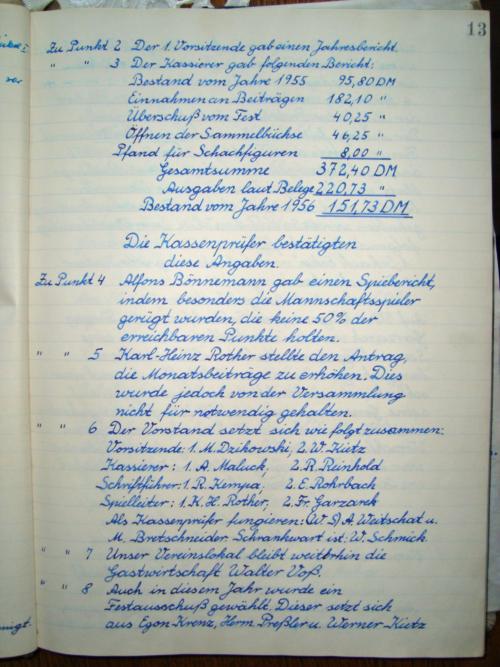 13
Zu Punkt 2 Der 1. Vorsitzende gab einen Jahresbericht.
" " 3 Der Kassierer gab folgenden Bericht:
Bestand vom Jahre 1955 95,80 DM
Einnahmen an Beiträgen 182,10 "
Überschuß vom Fest 40,25 "
Öffnen der Sammelbüchse 46,25 "
Pfand für Schachfiguren 8,00 "
Gesamtsumme 372,40 DM
Ausgaben laut Belege 220,73 "
Bestand vom Jahre 1956 151,73 DM
Die Kassenprüfer bestätigten
diese Angaben.
Zu Punkt 4 Alfons Bönnemann gab einen Spiebericht,
indem besonders die Mannschaftsspieler
gerügt wurden, die keine 50% der
erreichbaren Punkte holten.
" " 5 Karl-Heinz Rother stellte den Antrag,
die Monatsbeiträge zu erhöhen. Dies
wurde jedoch von der Versammlung
nicht für notwendig gehalten.
" " 6 Der Vorstand setzt sich wie folgt zusammen:
Vorsitzende: 1. M. Dzikowski, 2. W. Kietz
Kassierer: 1. A. Maluck, 2. R. Reinhold
Schriftführer: 1. R. Kempa, 2. E. Rohrbach
Spielleiter: 1. K. H. Rother, 2. Fr. Garzarek
Als Kassenprüfer fungieren: A. Weitschat u.
M. Bretschneider Schrankwart ist: W. Schmick
" " 7 Unser Vereinslokal bleibt weiterhin die
Gastwirtschaft Walter Voß.
" " 8 Auch in diesem Jahr wurde ein
Festausschuß gewählt. Dieser setzt sich
aus Egon Krenz, Herm. Preßler u. Werner Kietz